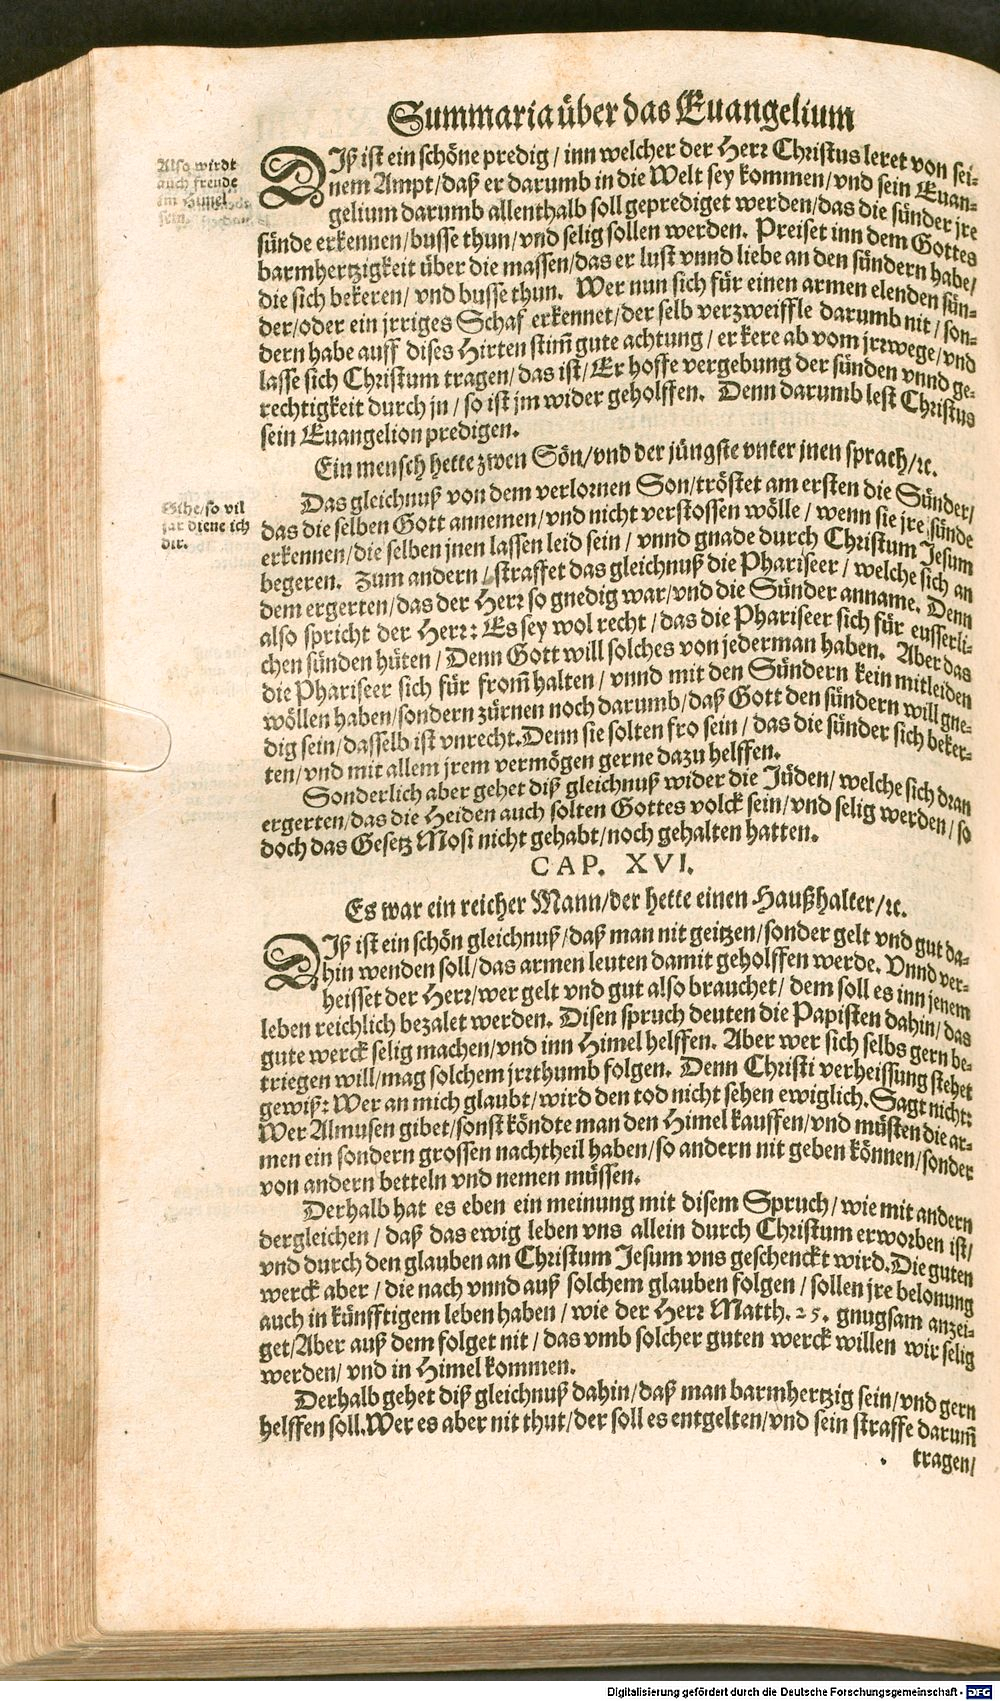 Summaria über das Euangelium
Also wirdt
auch freude
im Himel
sein.
DIß ist ein schöne predig / inn welcher der Herr Christus leret von sei-
nem Ampt / daß er darumb in die Welt sey kommen / vnd sein Euan-
gelium darumb allenthalb soll geprediget werden / das die sünder jre
sünde erkennen / busse thun / vnd selig sollen werden. Preiset inn dem Gottes
barmhertzigkeit über die massen / das er lust vnnd liebe an den sündern habe /
die sich bekeren / vnd busse thun. Wer nun sich für einen armen elenden sün-
der / oder ein jrriges Schaf erkennet / der selb verzweiffle darumb nit / son-
dern habe auff dises Hirten stim̄ gute achtung / er kere ab vom jrrwege / vnd
lasse sich Christum tragen / das ist / Er hoffe vergebung der sünden vnnd ge-
rechtigkeit durch jn / so ist jm wider geholffen. Denn darumb lest Christus
sein Euangelion predigen.
Ein mensch hette zwen Sön / vnd der jüngste vnter jnen sprach / ꝛc.
Sihe / so vil
jar diene ich
dir.
Das gleichnuß von dem verlornen Son / tröstet am ersten die Sünder /
das die selben Gott annemen / vnd nicht verstossen wölle / wenn sie jre sünde
erkennen / die selben jnen lassen leid sein / vnnd gnade durch Christum Jesum
begeren. Zum andern / straffet das gleichnuß die Phariseer / welche sich an
dem ergerten / das der Herr so gnedig war / vnd die Sünder anname. Denn
also spricht der Herr: Es sey wol recht / das die Phariseer sich für eusserli-
chen sünden hüten / Denn Gott will solches von jederman haben. Aber das
die Phariseer sich für from̄ halten / vnnd mit den Sündern kein mitleiden
wöllen haben / sondern zürnen noch darumb / daß Gott den sündern will gne-
dig sein / dasselb ist vnrecht. Denn sie solten fro sein / das die sünder sich beker-
ten / vnd mit allem jrem vermögen gerne dazu helffen.
Sonderlich aber gehet diß gleichnuß wider die Jüden / welche sich dran
ergerten / das die Heiden auch solten Gottes volck sein / vnd selig werden / so
doch das Gesetz Mosi nicht gehabt / noch gehalten hatten.
CAP. XVI.
Es war ein reicher Mann / der hette einen Haußhalter / ꝛc.
DIß ist ein schön gleichnuß / daß man nit geitzen / sonder gelt vnd gut da-
hin wenden soll / das armen leuten damit geholffen werde. Vnnd ver-
heisset der Herr / wer gelt vnd gut also brauchet / dem soll es inn jenem
leben reichlich bezalet werden. Disen spruch deuten die Papisten dahin / das
gute werck selig machen / vnd inn Himel helffen. Aber wer sich selbs gern be-
triegen will / mag solchem jrrthumb folgen. Denn Christi verheissung stehet
gewiß: Wer an mich glaubt / wird den tod nicht sehen ewiglich. Sagt nicht:
Wer Almusen gibet / sonst köndte man den Himel kauffen / vnd müsten die ar-
men ein sondern grossen nachtheil haben / so andern nit geben können / sonder
von andern betteln vnd nemen müssen.
Derhalb hat es eben ein meinung mit disem Spruch / wie mit andern
dergleichen / daß das ewig leben vns allein durch Christum erworben ist /
vnd durch den glauben an Christum Jesum vns geschenckt wird. Die guten
werck aber / die nach vnnd auß solchem glauben folgen / sollen jre belonung
auch in künfftigem leben haben / wie der Herr Matth. 25. gnugsam anzei-
get / Aber auß dem folget nit / das vmb solcher guten werck willen wir selig
werden / vnd in Himel kommen.
Derhalb gehet diß gleichnuß dahin / daß man barmhertzig sein / vnd gern
helffen soll. Wer es aber nit thut / der soll es entgelten / vnd sein straffe darum̄
tragen /
Digitalisierung gefördert durch die Deutsche Forschungsgemeinschaft - DFG